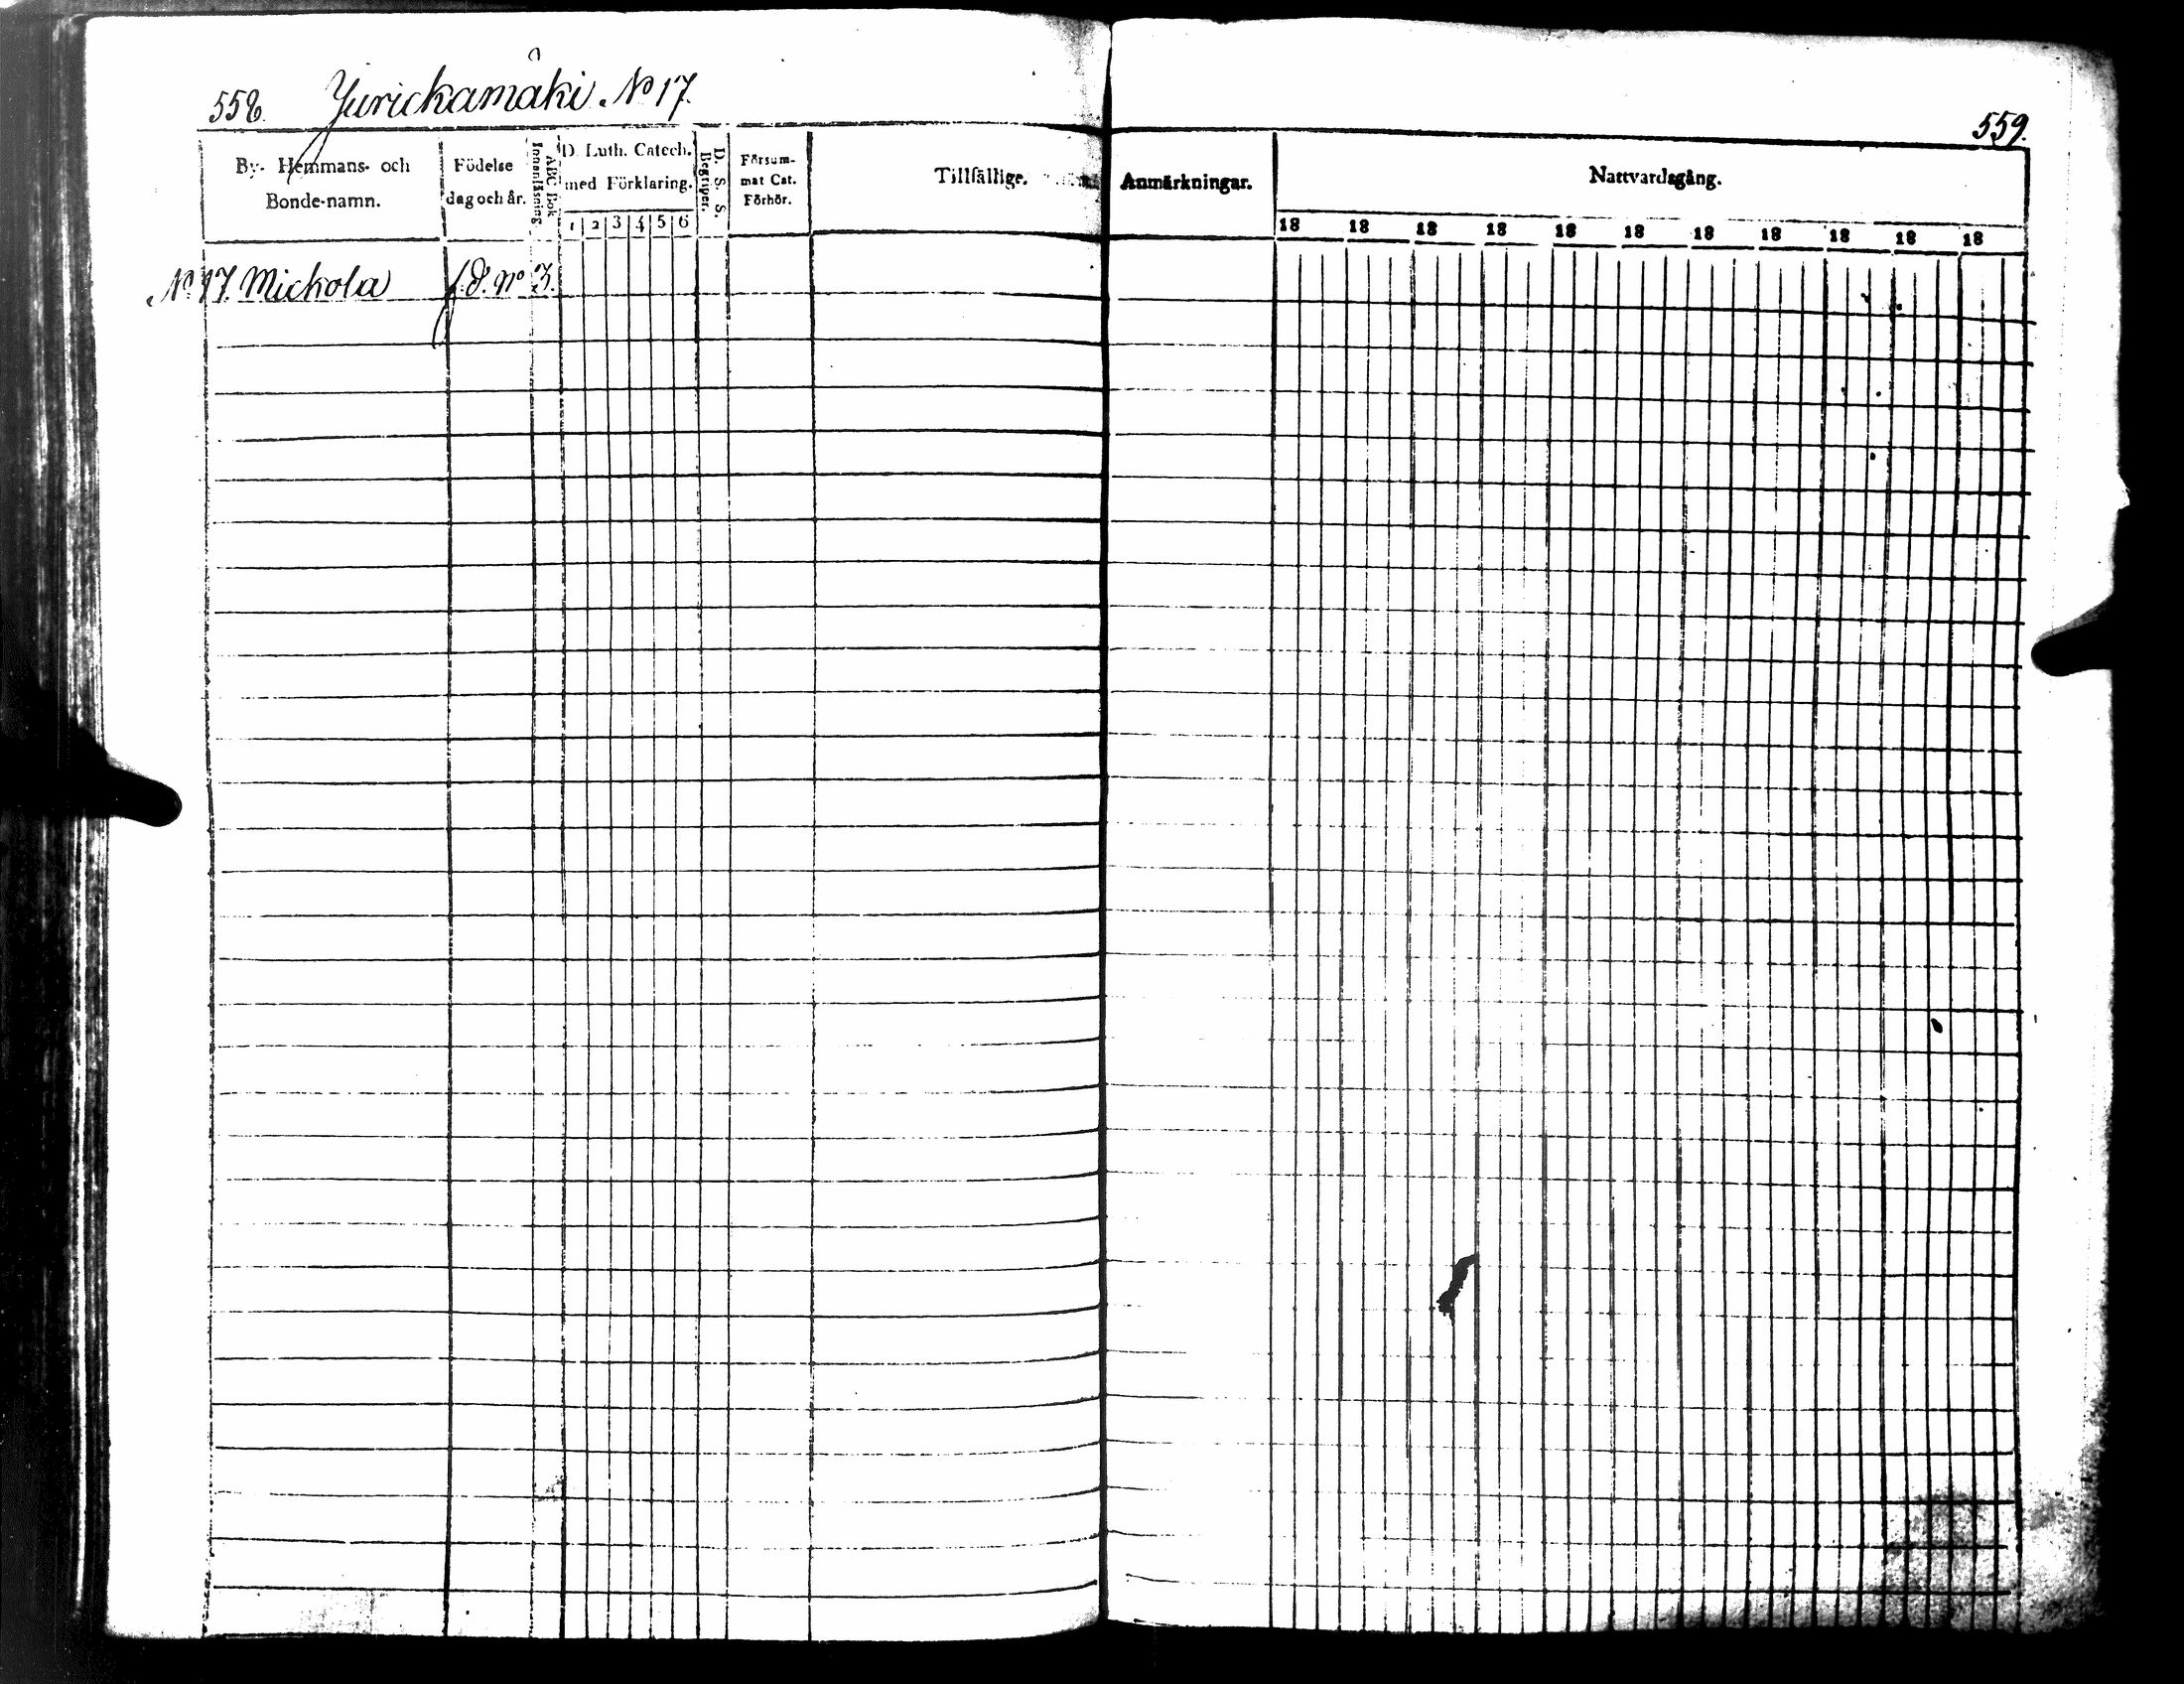 558. Jurickamäki. No 17.
559.
By- Hemmans- och
Bonde-namn.
Födelse
dag och år.
ABC Bok
Innanläsning
D. Luth. Catech.
med Förklaring.
1 2 3 4 5 6
D. S. S.
Begriper.
Försum-
mat Cat.
Förhör.
Tillfällige.
Anmärkningar.
Nattvardsgång.
18 18 18 18 18 18 18 18 18 18 18
No 17. Mickola f.d. No 3.